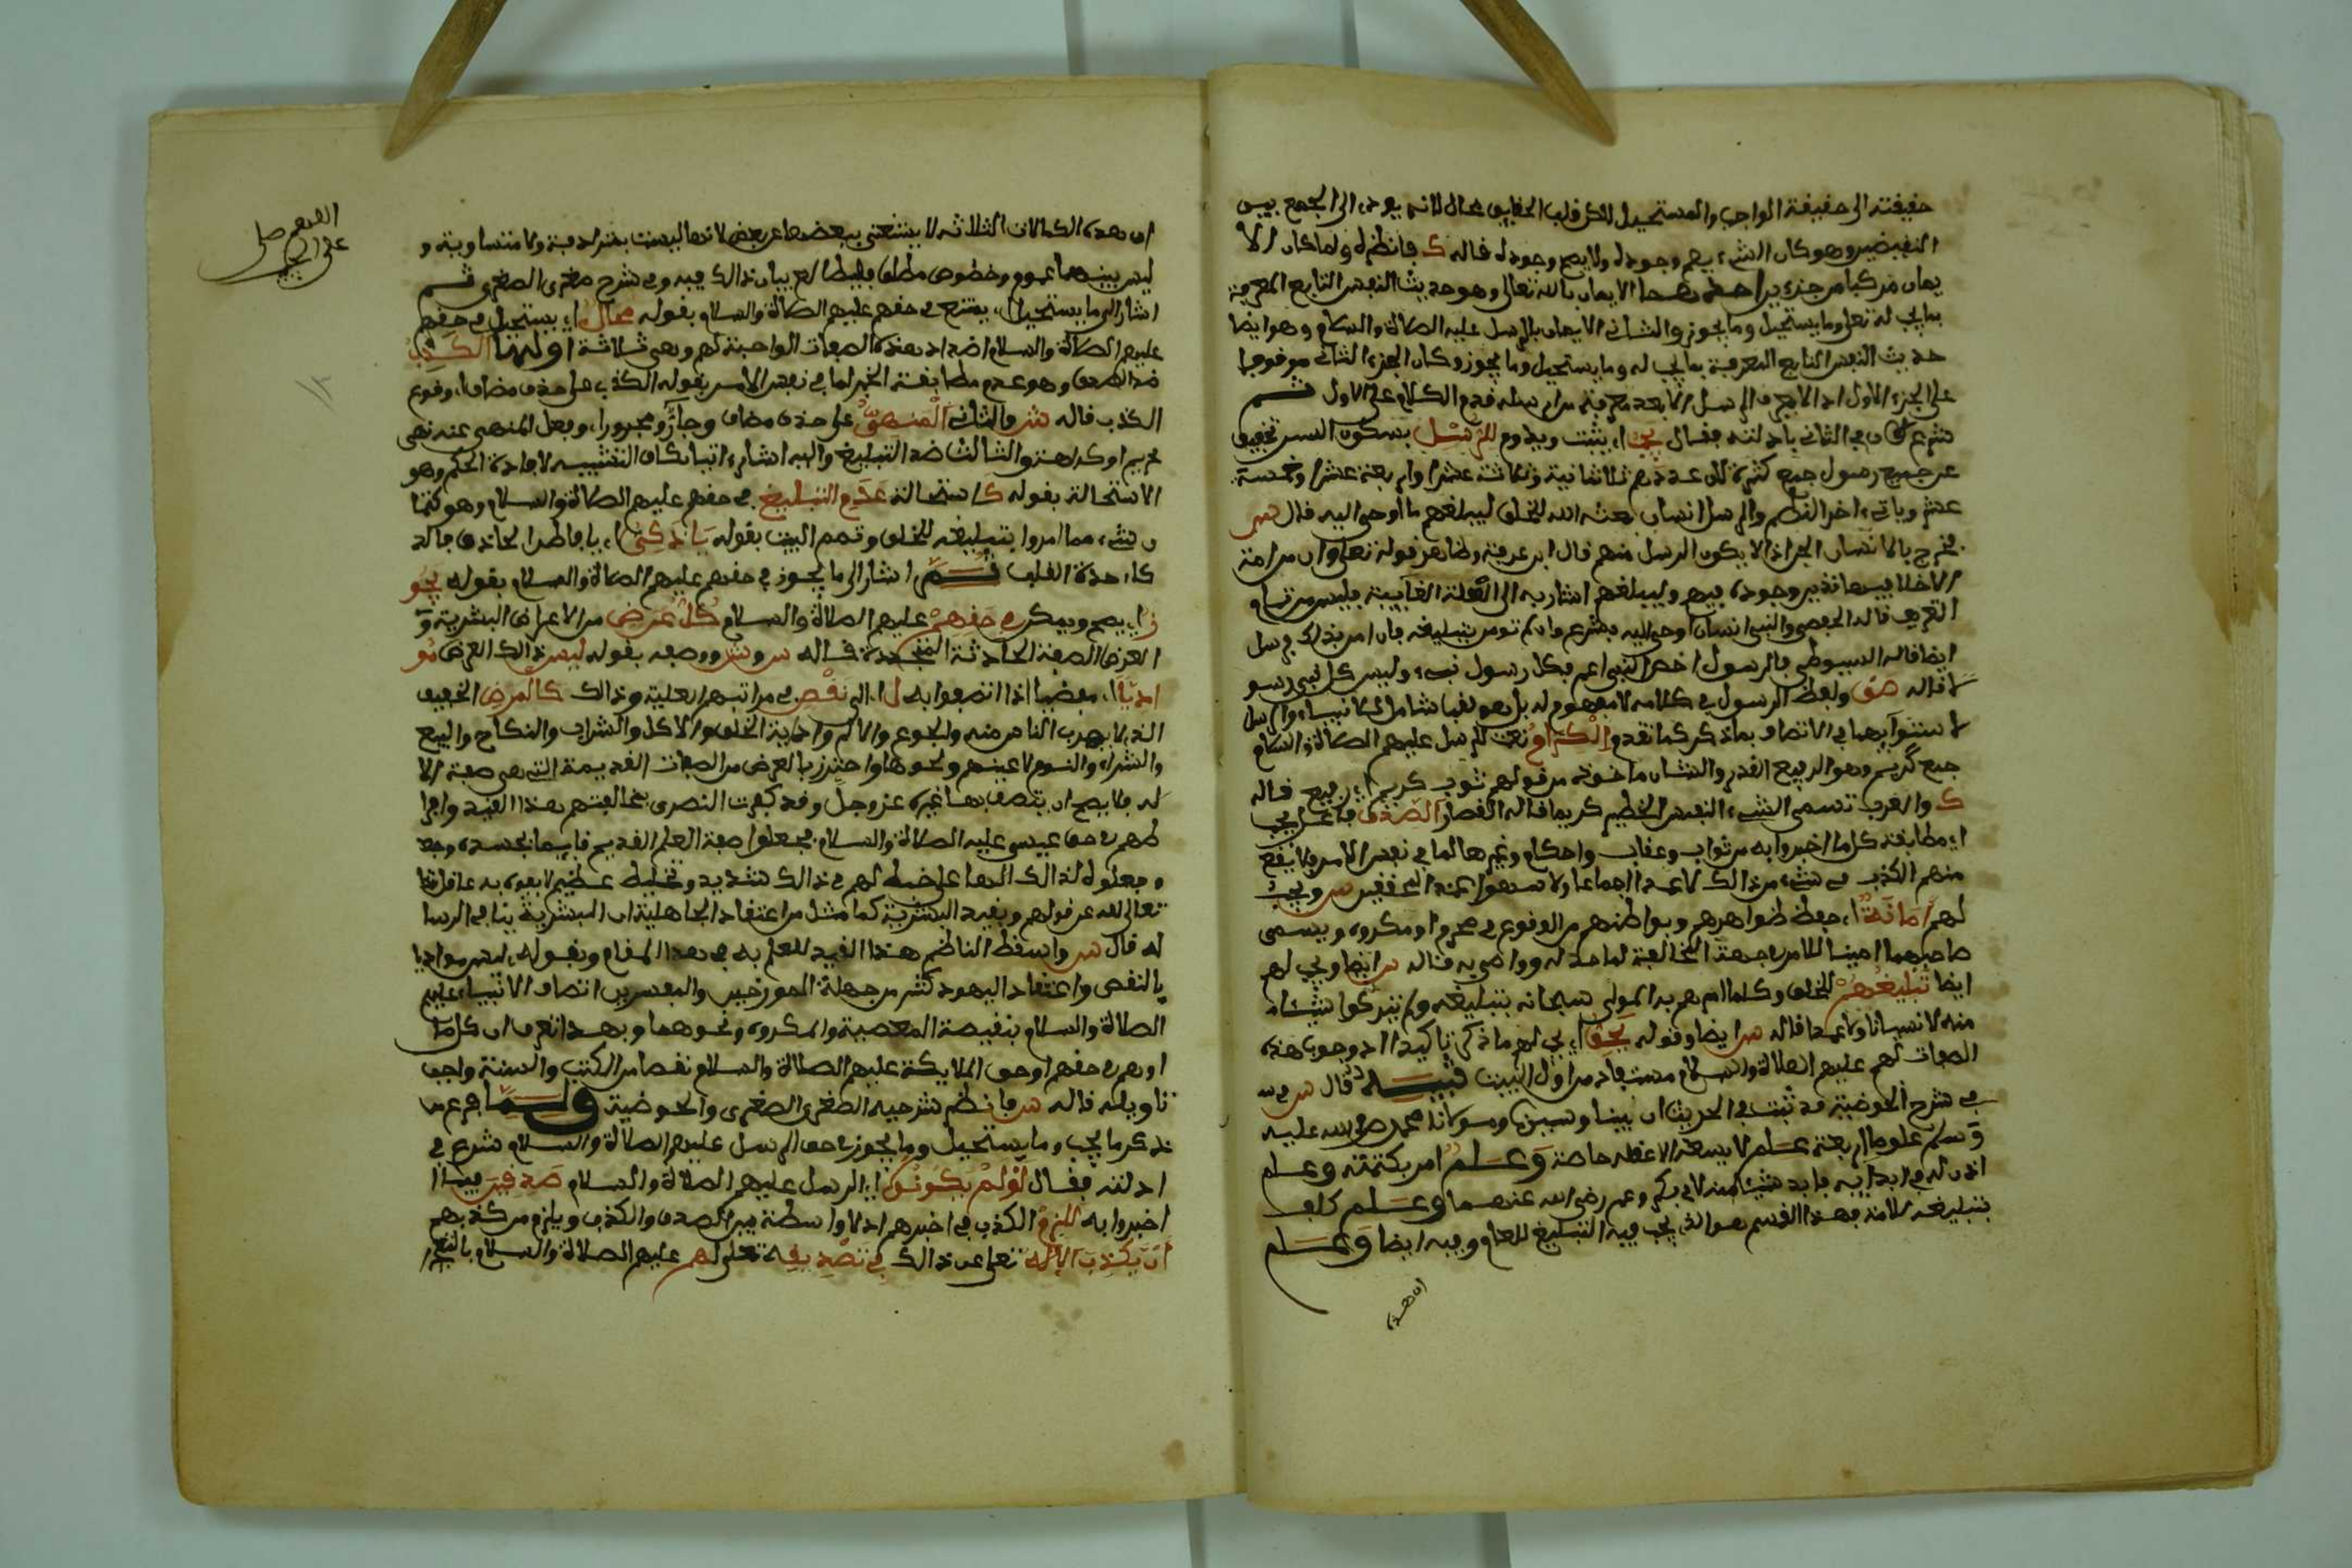 حقيقته الى حقيقة الواجب والمستحيل لاكن قلب الحقايق محال لانه يودي الى الجمع بين
النقيضين وهو كان الشيء يصح وجوده ولا يصح وجوده قاله ك فانظره ولما كان الا
يمان مركبا من جزءين احدهما الايمان بالله تعالى وهو حديث النفس التابع للمعرفة
بما يجب له تعلى وما يستحيل وما يجوز والثاني الايمان بالرسل عليهم الصلاة والسلام وهو ايضا
حديث النفس التابع للمعرفة بما يجب له وما يستحيل وما يجوز وكان الجزء الثاني موقوفا
على الجزء الاول اذ لا يعرف الرسل الا بعد معرفة مرسله قدم الكلام على الاول ثم
شرع في الثاني بادلته فقال يجب اي يثبت ويدوم للرسل بسكون السين تخفيف
عن جميع رسول جمع كثرة لان عددهم ثلاثمائة وثلاثة عشر او اربعة عشر او خمسة
عشر وياتي اخر النظم والرسل انسان بعثه الله للخلق ليبلغهم ما اوحي اليه قال س
فخرج بالانسان الجن اذ لا يكون الرسل منهم قال ابن عرفة وظاهر قوله تعلى وان من امة
الا خلا فيها نذير وجوده فيهم وليبلغهم اشار به الى العلة الغايية فليس من تمام
التعريف قاله الجعبي والنبي انسان اوحي اليه بشرع وان لم تومر بتبليغه فان امر بذلك فرسل
ايضا قاله السيوطي فالرسول اخص والنبي اعم فكل رسول نبي وليس كل نبي رسو
لا قاله ض ولفظ الرسول في كلامه لا مفهوم له بل هو شامل للانبياء والرسل
لاستوايهما في الاتصاف بما ذكر كما تقدم الكرام نعت للرسل عليهم الصلاة والسلام
جمع كريم وهو الرفيع القدر والشان ماخوذ من قولهم ثوب كريم اي رفيع قاله
ك والعرب تسمي الشيء النفيس الخطير كريما قاله القصار الصدق فاعل يجب
اي مطابقة كل ما اخبروا به من ثواب وعقاب واحكام وغيرها لما في نفس الامر ولا يقع
منهم الكذب في شيء من ذلك لا عمدا اجماعا ولا سهوا عند المحققين س ويجب
لهم امانة اي حفظ ظواهرهم وبواطنهم من الوقوع في محرم او مكروه ويسمى
صاحبهما امينا للامن من جهة المخالفة لما حد له ووصي به قاله س ايضا ويجب لهم
ايضا تبليغهم للخلق وكلما امرهم به المولى سبحانه بتبليغه ولم يتركوا شيئا
منه لا نسيانا ولا عمدا قاله س ايضا وقوله يحق اي يجب لهم ما ذكر تاكيدا اذ وجوب هذه
الصفات لهم عليهم الصلاة والسلام مستفاد من اول البيت تنبيه قال س
في شرح الحوضية قد ثبت في الحديث ان نبينا وسيدنا ومولانا محمد صلى الله عليه
وسلم علوما اربعة علم لا يسعه الا عقله خاصة وعلم امر بكتمته وعلم
اذن له في ابدايه فابد شيئا منه لابي بكر وعمر رضي الله عنهما وعلم كلف
بتبليغه لامته فهذا القسم هو الذي يجب فيه التبليغ للعام وفيه ايضا وعلم
ان هذه
ان هذه الكمالات الثلاثة لا يستغنى ببعضها عن بعض لانها ليست بمترادفة ولا متساوية و
ليس بينهما عموم وخصوص مطلق فليطالع بيان ذالك فيه وفي شرح صغرى الصغرى ثم
اشار الى ما يستحيل اي يمتنع في حقهم عليهم الصلاة والسلام بقوله محال اي يستحيل في حقهم
عليهم الصلاة والسلام اضداد هذه الصفات الواجبة لهم وهي ثلاثة اولها الكذب
ضد الصدق وهو عدم مطابقة الخبر لما في نفس الامر بقوله الكذب على حذف مضاف اي وقوع
الكذب قاله ش والثاني المنهي على حذف مضاف وجار ومجرور اي وفعل المنهي عنه نهي
تحريم او كراهة والثالث ضد التبليغ واليه اشار اتيا بكاف التشبيه لافادة الحكم وهو
الاستحالة بقوله كاستحالة عدم التبليغ في حقهم عليهم الصلاة والسلام وهو كتما
ن شيء مما امروا بتبليغه للخلق وتمم البيت بقوله يا ذكي اي يا فاطن الحاذق فالذ
كاء حدة القلب ثم اشار الى ما يجوز في حقهم عليهم الصلاة والسلام بقوله يجو
ز اي يصح ويمكن في حقهم عليهم الصلاة والسلام كل عرض من الاعراض البشرية و
العرض الصفة الحادثة المتجددة قاله س وش ووصفه بقوله ليس ذالك العرض مو
اديا اي مفضيا اذا اتصفوا به ل اي الى نقص في مراتبهم العلية وذالك كالمرض الخفيف
الذي لا يهرب الناس منه والجوع والالم واذاية الخلق والاكل والشراب والنكاح والبيع
والشراء والنوم لاعينهم ونحوها واحترز بالعرض من الصفات القديمة التي هي صفة الا
له فلا يصح ان يتصف بها غيره عز وجل وقد كفرت النصرى بمخالفتهم هذا القيد وافرا
طهم في حق عيسى عليه الصلاة والسلام فجعلوا صفة العلم القديم قايما بجسده وجعلو
وجعلوه لذالك الها على خبط لهم في ذالك شديد وتخليط عظيم لا يفوه به عاقل
تعالى الله عن قولهم وبقيد البشرية كما مثل من اعتقاد الجاهلية ان البشرية ينافي الرسا
له قال س واسقط الناظم هذا القيد للعلم به في هذا المقام وبقوله ليس مواديا
بالنقص واعتقاد اليهود كثر من جهلة المورخين والمفسرين اتصاف الانبياء عليهم
الصلاة والسلام بنقيصة المعصية والمكروه ونحوهما وبهذا تعرف ان كل ما
اوهم في حقهم او حق الملايكة عليهم الصلاة والسلام نقصا من الكتب والسنة واجب
تاويله قاله س فانظم شرحيه الصغرى الصغرى والحوضية ولما فرغ من
ذكر ما يجب وما يستحيل وما يجوز في حق الرسل عليهم الصلاة والسلام شرع في
ادلته فقال لو لم يكونوا اي الرسل عليهم الصلاة والسلام صدقين فيما
اخبروا به للزم الكذب في اخبرهم اذ لا واسطة بين الصدق والكذب ويلزم من كذبهم
ان يكذب الاله تعلى عن ذالك في تصديقه تعلى لهم عليهم الصلاة والسلام